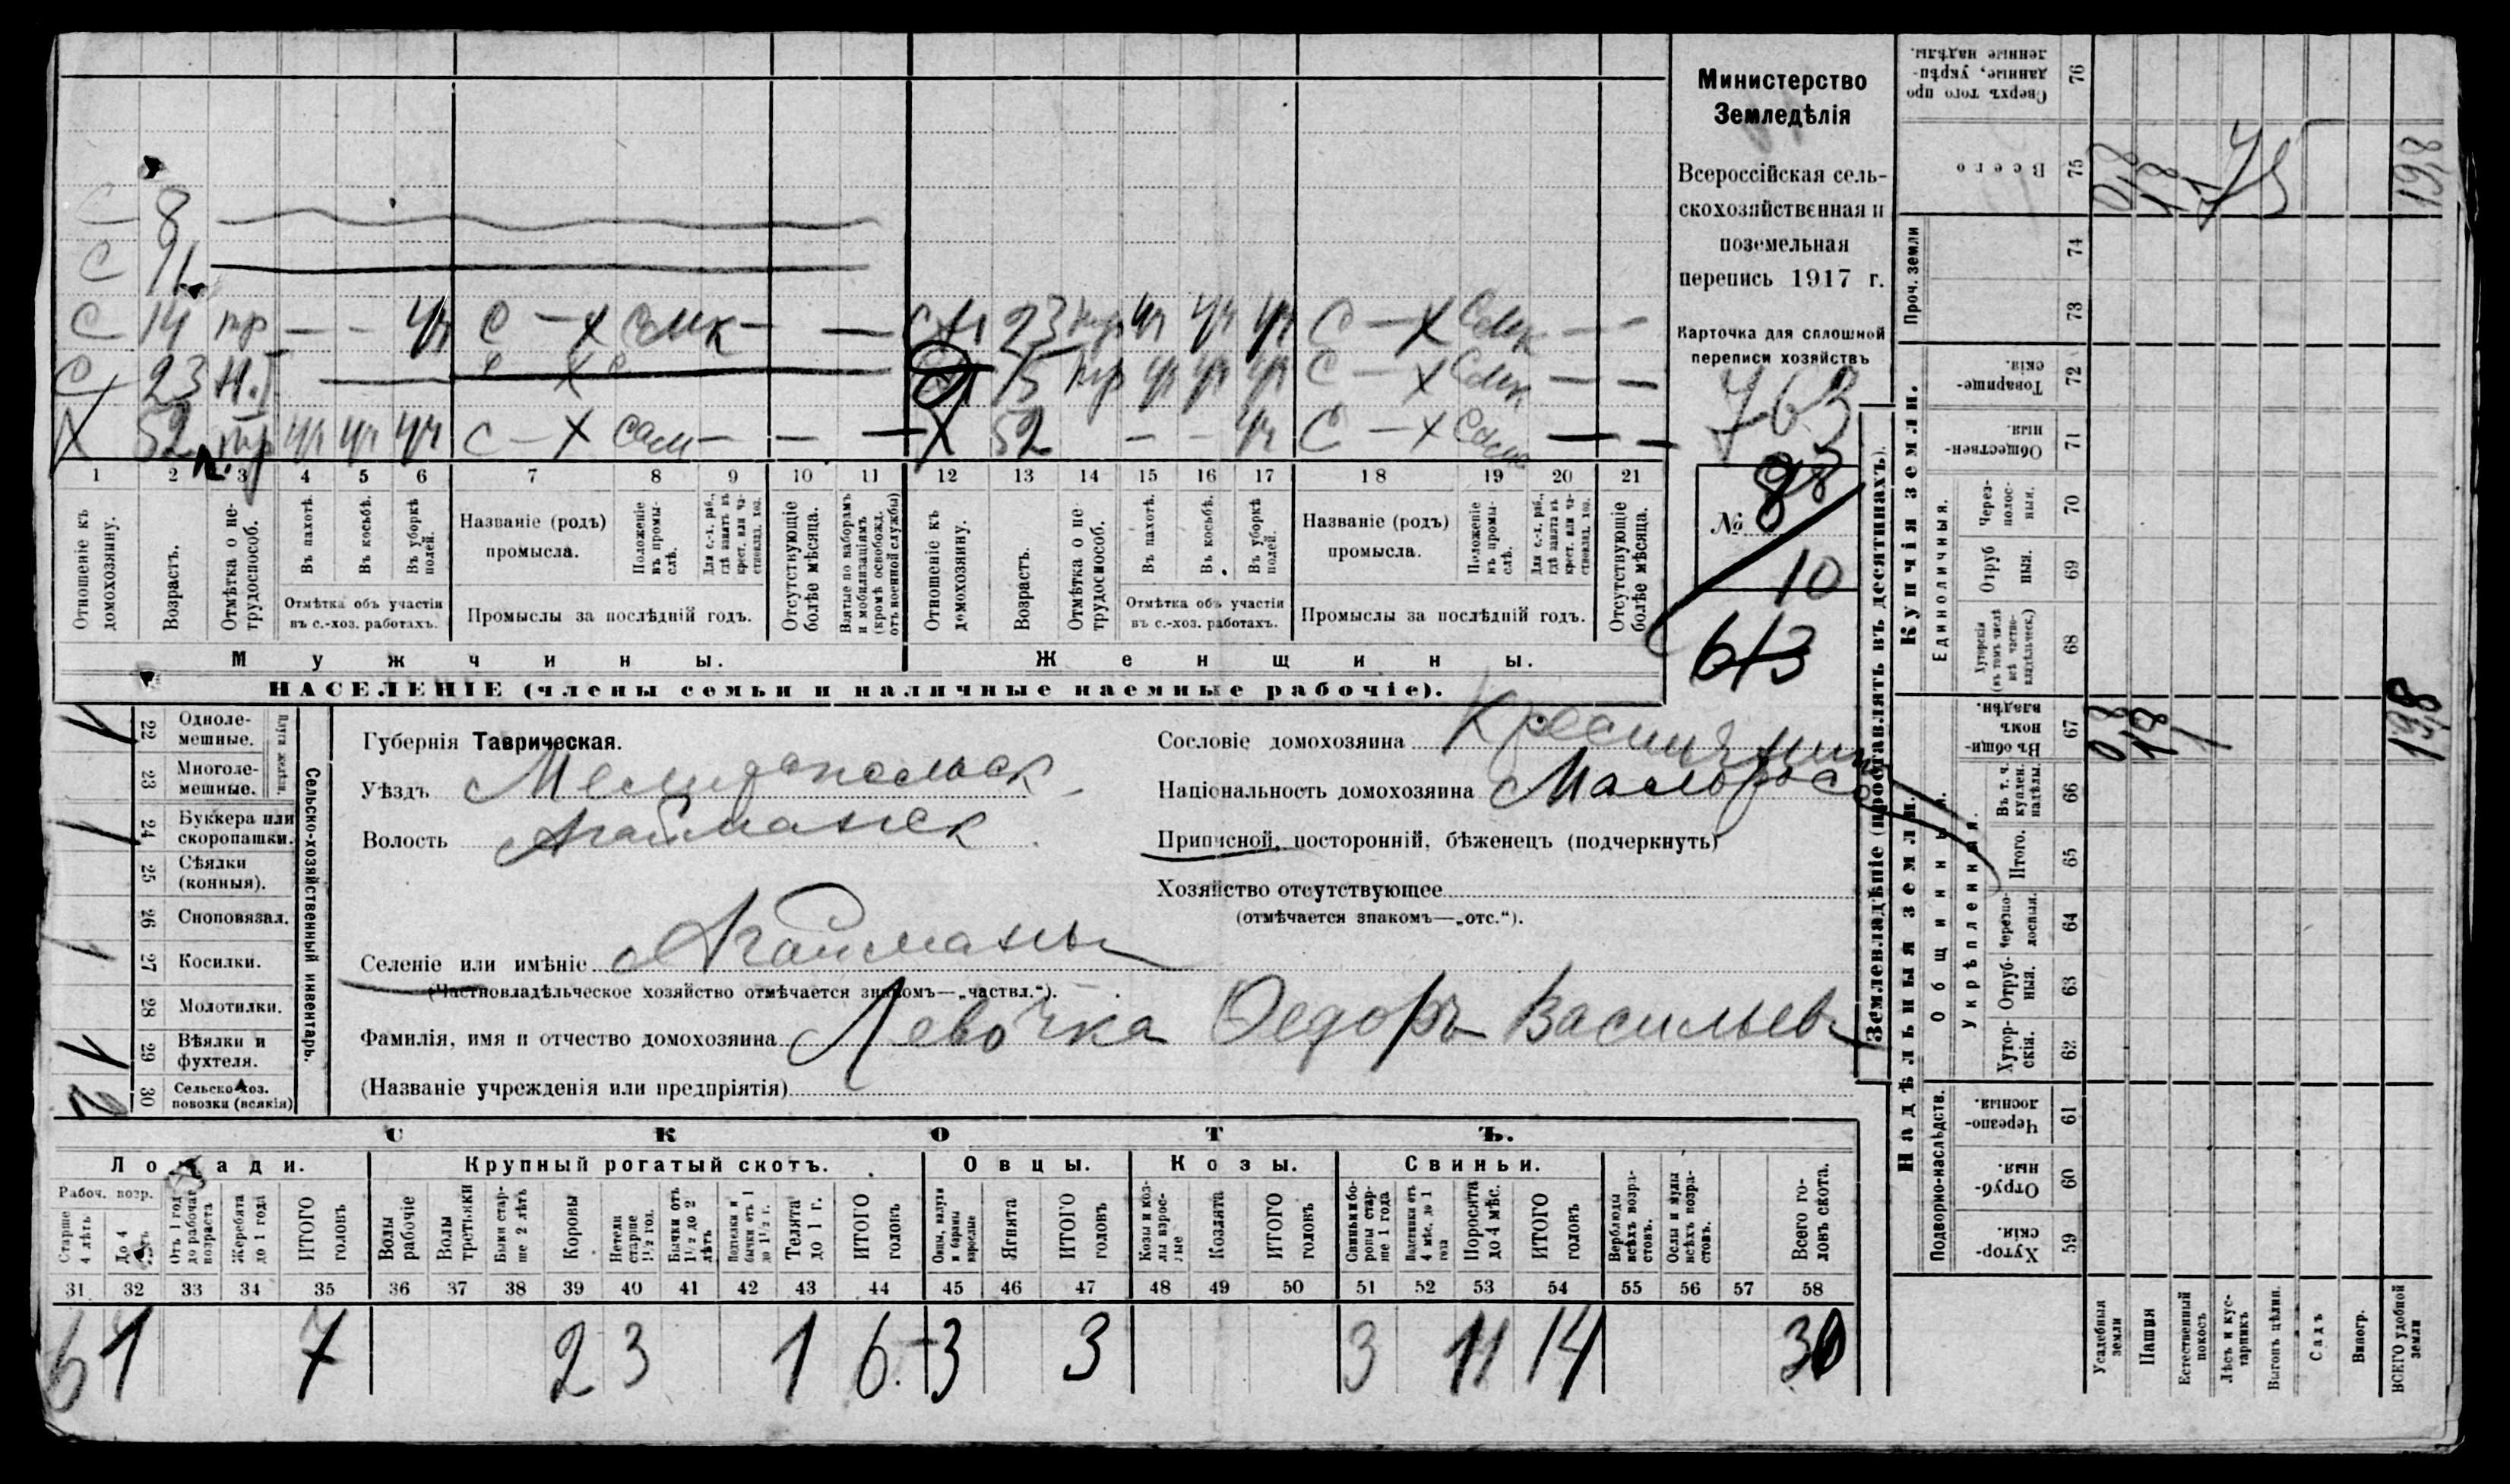 Министерство
Земледѣлія
Всероссійская сель-
скохозяйственная и
поземельная
перепись 1917 г.
Карточка для сплошной
переписи хозяйствъ
763
98
№
10
613
С 8
С
С 14 пр — — уч С — Х сам — — — 23 нр уч уч уч С — Х — —
С 23 Н.Т. 15 пр уч уч уч С — Х — —
Х 52 пр уч уч уч С — Х сам — — — Х 52 — — уч С — Х — —
1 2 3 4 5 6 7 8 9 10 11 12 13 14 15 16 17 18 19 20 21
Отношеніе къ домохозяину.
Возрастъ.
Отмѣтка о не-трудоспособ.
Въ пахотѣ.
Въ косьбѣ.
Въ уборкѣ полей.
Отмѣтка объ участіи
въ с.-хоз. работахъ.
Названіе (родъ)
промысла.
Положеніе въ промы-слѣ.
Для с.-х. раб., гдѣ занятъ въ крест. или ча-стновлад. хоз.
Промыслы за послѣдній годъ.
Отсутствующіе болѣе мѣсяца.
Взятые по наборамъ и мобилизаціямъ (кромѣ освобожд. отъ военной службы)
Отношеніе къ домохозяину.
Возрастъ.
Отмѣтка о не-трудоспособ.
Въ пахотѣ.
Въ косьбѣ.
Въ уборкѣ полей.
Отмѣтка объ участіи
въ с.-хоз. работахъ.
Названіе (родъ)
промысла.
Положеніе въ промы-слѣ.
Для с.-х. раб., гдѣ занята въ крест. или ча-стновлад. хоз.
Промыслы за послѣдній годъ.
Отсутствующіе болѣе мѣсяца.
Мужчины.
Женщины.
НАСЕЛЕНІЕ (члены семьи и наличные наемные рабочіе).
Сельско-хозяйственный инвентарь.
Плуги желѣзн.
22 Одноле-мешные. 1
23 Многоле-мешные.
24 Буккера или скоропашки. 1
25 Сѣялки (конныя).
26 Сноповязал.
27 Косилки. 1
28 Молотилки.
29 Вѣялки и фухтеля. 1
30 Сельско-хоз. повозки (всякія) 2
Губернія Таврическая.
Уѣздъ Мелитопольск
Волость Агайманск
Селеніе или имѣніе Агайманы
(Частновладѣльческое хозяйство отмѣчается знакомъ—„частвл.“).
Фамилія, имя и отчество домохозяина Левочка Федоръ Васильевъ
(Названіе учрежденія или предпріятія)
Сословіе домохозяина Крестьянин
Національность домохозяина Малоросс
Приписной, посторонній, бѣженецъ (подчеркнуть)
Хозяйство отсутствующее
(отмѣчается знакомъ—„отс.“).
СКОТЪ.
Лошади.
Крупный рогатый скотъ.
Овцы.
Козы.
Свиньи.
Рабоч. возр.
Старше 4 лѣтъ
До 4 лѣтъ
Отъ 1 год до рабочаг возраста
Жеребята до 1 года
ИТОГО головъ
Волы рабочіе
Волы третьяки
Быки стар-ше 2 лѣтъ
Коровы
Нетели старше 1½ год.
Бычки отъ 1½ до 2 лѣтъ
Нетельки и бычки отъ 1 до 1½ г.
Телята до 1 г.
ИТОГО головъ
Овцы, валухи и бараны взрослые
Ягнята
ИТОГО головъ
Козы и коз-лы взрос-лые
Козлята
ИТОГО головъ
Свиньи и бо-ровы стар-ше 1 года
Подсвинки отъ 4 мѣс. до 1 года
Поросята до 4 мѣс.
ИТОГО головъ
Верблюды всѣхъ возра-стовъ.
Ослы и мулы всѣхъ возра-стовъ.
Всего го-ловъ скота.
31 32 33 34 35 36 37 38 39 40 41 42 43 44 45 46 47 48 49 50 51 52 53 54 55 56 57 58
6 1 7 2 3 1 6 3 3 3 11 14 30
Землевладѣніе (проставлять въ десятинахъ).
Надѣльныя земли.
Купчія земли.
Проч. земли
Подворно-наслѣдств.
Общинныя.
Укрѣпленныя.
Единоличныя.
Хутор-скія. 59
Отруб-ныя. 60
Черезпо-лосныя. 61
Хутор-скія. 62
Отруб-ныя. 63
Черезпо-лосныя. 64
Итого. 65
Въ т. ч. куплен. надѣлы. 66
Въ общин-номъ владѣн. 67
Хуторскія (въ томъ числѣ всѣ частно-владѣльческ.) 68
Отруб-ныя. 69
Черезпо-лос-ныя. 70
Обществен-ныя. 71
Товарище-скія. 72
73
74
Всего 75
Сверхъ того про-данные, укрѣп-ленные надѣлы. 76
Усадебныя земли 0,8 0,8
Пашня 18 18
Естественный покосъ 1
Лѣсъ и кус-тарникъ
Выгонъ цѣлин.
Садъ
Виногр.
ВСЕГО удобной земли 19,8 19,8